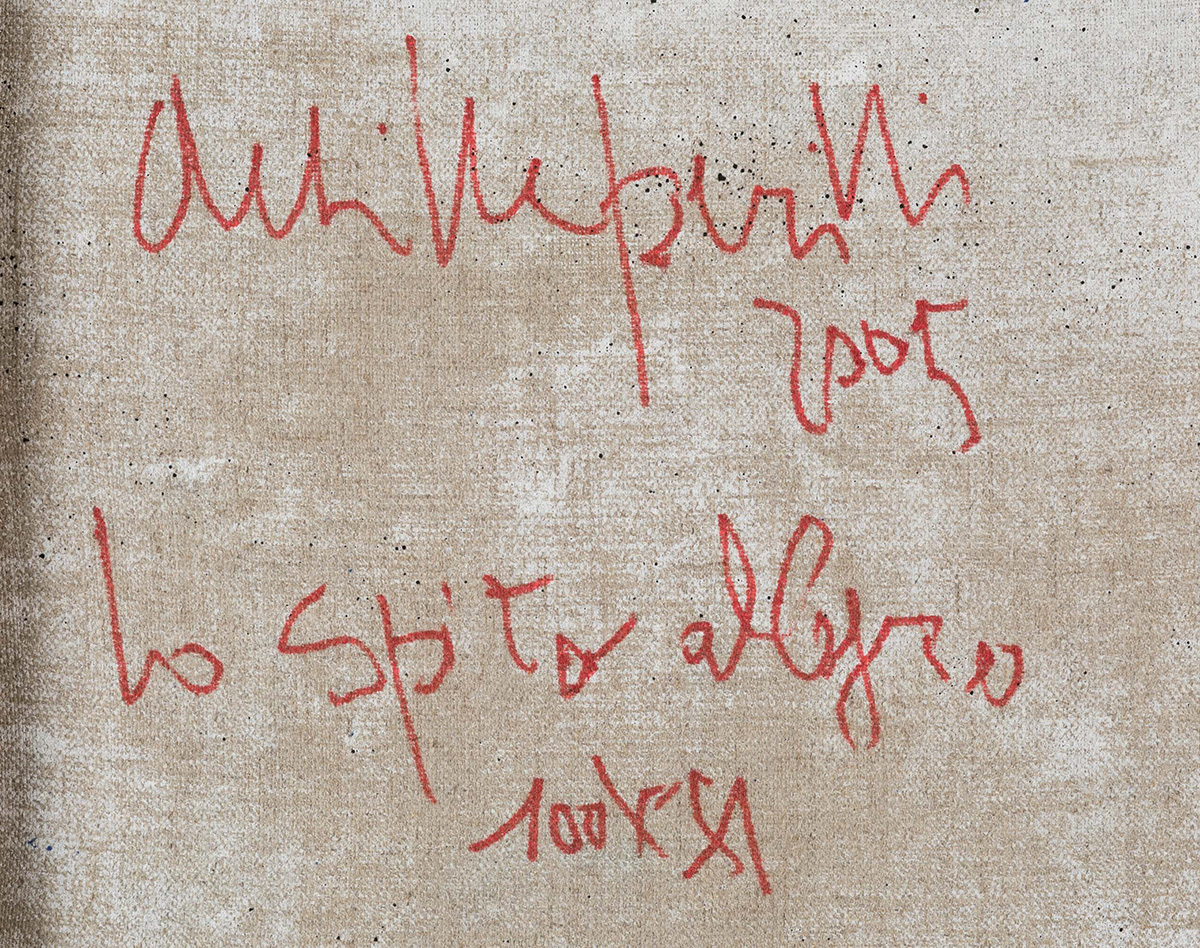 Achille Perilli
2005
Lo spito allegro
100x81